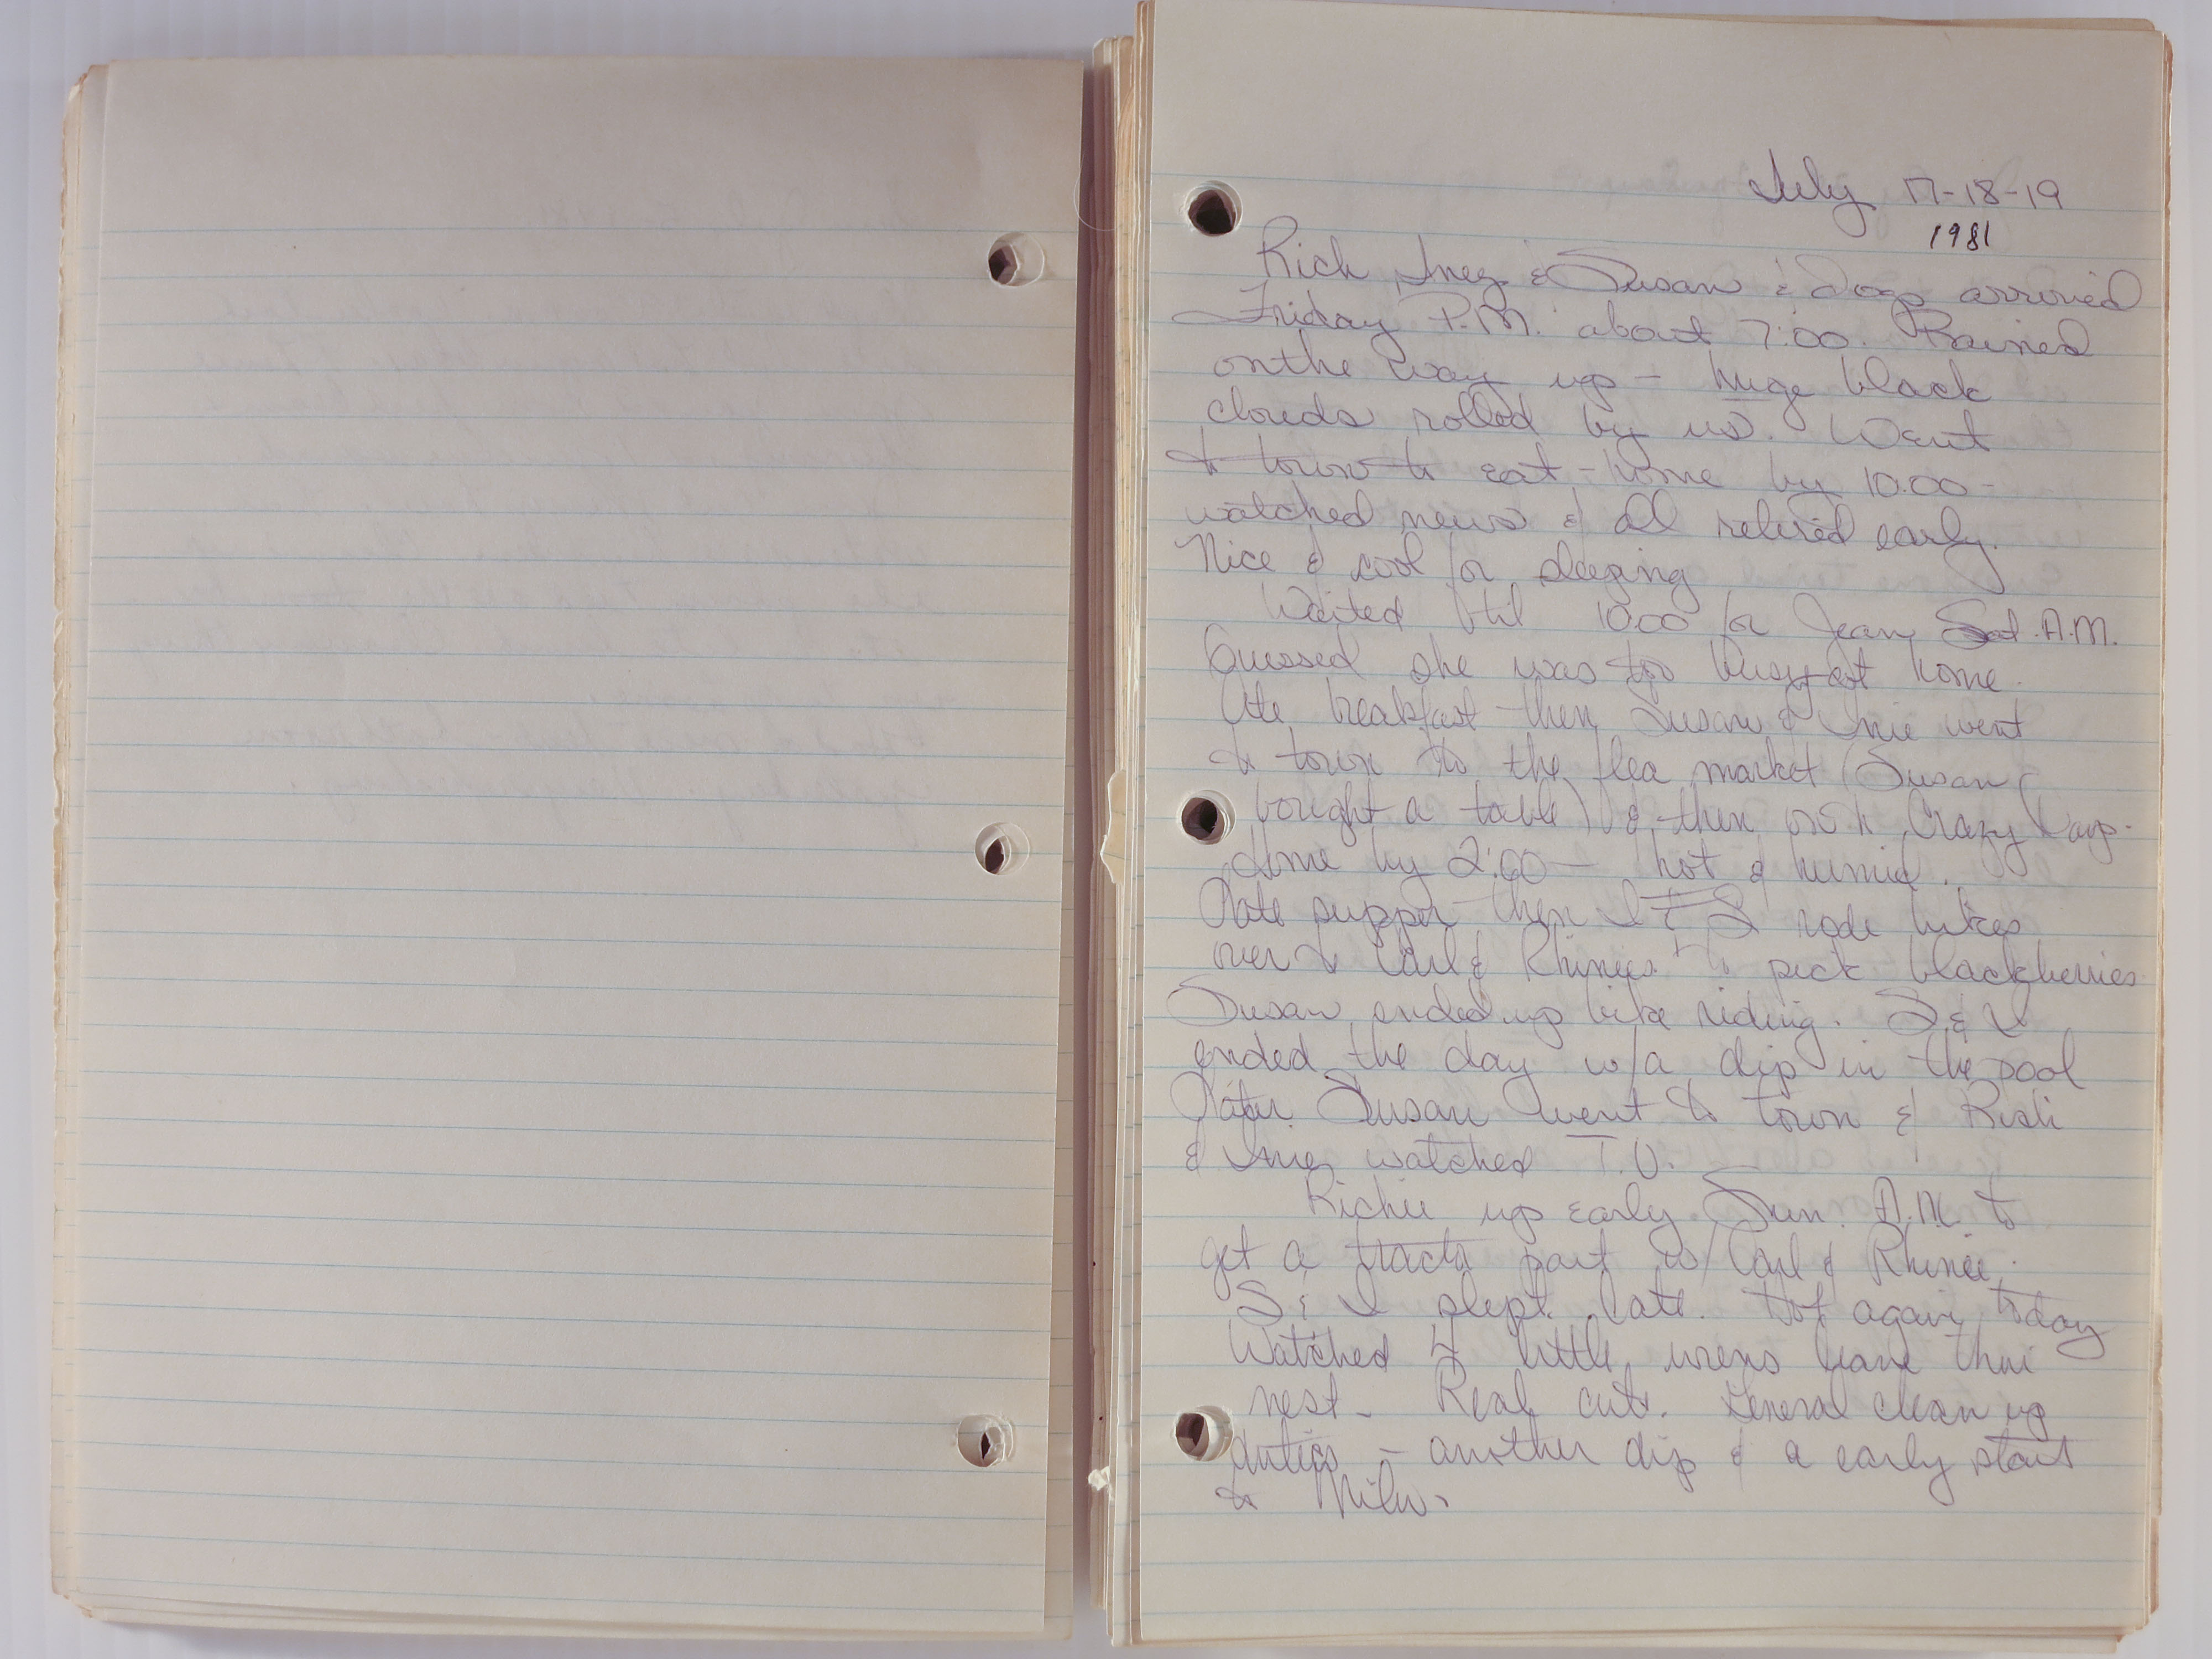 July 17-18-19
1981
Rich, Inez & Susan & dogs arrived
Friday P.M. about 7:00. Rained
on the way up - huge black
clouds rolled by us. Went
to town to eat - home by 10:00 -
watched news & all retired early.
Nice & cool for sleeping
Waited 'til 10:00 for Jean, Sat. A.M.
Guessed she was too busy at home.
Ate breakfast then Susan & Inie went
to town to the flea market (Susan
bought a table) & then on to Crazy Days.
Home by 2:00 - hot & humid.
Late supper then I & S rode bikes
over to Carl & Rhinies to pick blackberries
Susan ended up bike riding. S & I
ended the day w/a dip in the pool
Later Susan went to town & Rich
& Inez watched T.V.
Richie up early Sun. A.M. to
get a tractor part w/ Carl & Rhinie.
S & I slept late. Hot again today
Watched 4 little wrens leave their
nest - Real cute. General clean up
duties - another dip & a early start
to Milw.